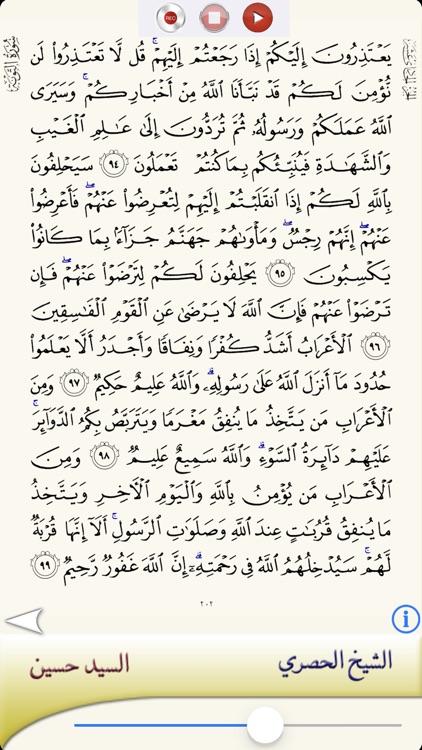 REC
سُورَةُ التَّوْبَةِ
يَعْتَذِرُونَ إِلَيْكُمْ إِذَا رَجَعْتُمْ إِلَيْهِمْ ۚ قُل لَّا تَعْتَذِرُوا۟ لَن
نُّؤْمِنَ لَكُمْ قَدْ نَبَّأَنَا ٱللَّهُ مِنْ أَخْبَارِكُمْ ۚ وَسَيَرَى
ٱللَّهُ عَمَلَكُمْ وَرَسُولُهُۥ ثُمَّ تُرَدُّونَ إِلَىٰ عَـٰلِمِ ٱلْغَيْبِ
وَٱلشَّهَـٰدَةِ فَيُنَبِّئُكُم بِمَا كُنتُمْ تَعْمَلُونَ ٩٤ سَيَحْلِفُونَ
بِٱللَّهِ لَكُمْ إِذَا ٱنقَلَبْتُمْ إِلَيْهِمْ لِتُعْرِضُوا۟ عَنْهُمْ ۖ فَأَعْرِضُوا۟
عَنْهُمْ ۖ إِنَّهُمْ رِجْسٌ ۖ وَمَأْوَىٰهُمْ جَهَنَّمُ جَزَآءًۢ بِمَا كَانُوا۟
يَكْسِبُونَ ٩٥ يَحْلِفُونَ لَكُمْ لِتَرْضَوْا۟ عَنْهُمْ ۖ فَإِن
تَرْضَوْا۟ عَنْهُمْ فَإِنَّ ٱللَّهَ لَا يَرْضَىٰ عَنِ ٱلْقَوْمِ ٱلْفَـٰسِقِينَ
٩٦ ٱلْأَعْرَابُ أَشَدُّ كُفْرًا وَنِفَاقًا وَأَجْدَرُ أَلَّا يَعْلَمُوا۟
حُدُودَ مَآ أَنزَلَ ٱللَّهُ عَلَىٰ رَسُولِهِۦ ۗ وَٱللَّهُ عَلِيمٌ حَكِيمٌ ٩٧ وَمِنَ
ٱلْأَعْرَابِ مَن يَتَّخِذُ مَا يُنفِقُ مَغْرَمًا وَيَتَرَبَّصُ بِكُمُ ٱلدَّوَآئِرَ ۚ
عَلَيْهِمْ دَآئِرَةُ ٱلسَّوْءِ ۗ وَٱللَّهُ سَمِيعٌ عَلِيمٌ ٩٨ وَمِنَ
ٱلْأَعْرَابِ مَن يُؤْمِنُ بِٱللَّهِ وَٱلْيَوْمِ ٱلْـَٔاخِرِ وَيَتَّخِذُ
مَا يُنفِقُ قُرُبَـٰتٍ عِندَ ٱللَّهِ وَصَلَوَٰتِ ٱلرَّسُولِ ۚ أَلَآ إِنَّهَا قُرْبَةٌ
لَّهُمْ ۚ سَيُدْخِلُهُمُ ٱللَّهُ فِى رَحْمَتِهِۦٓ ۗ إِنَّ ٱللَّهَ غَفُورٌ رَّحِيمٌ ٩٩
٢٠٢
i
الشيخ الحصري
السيد حسين